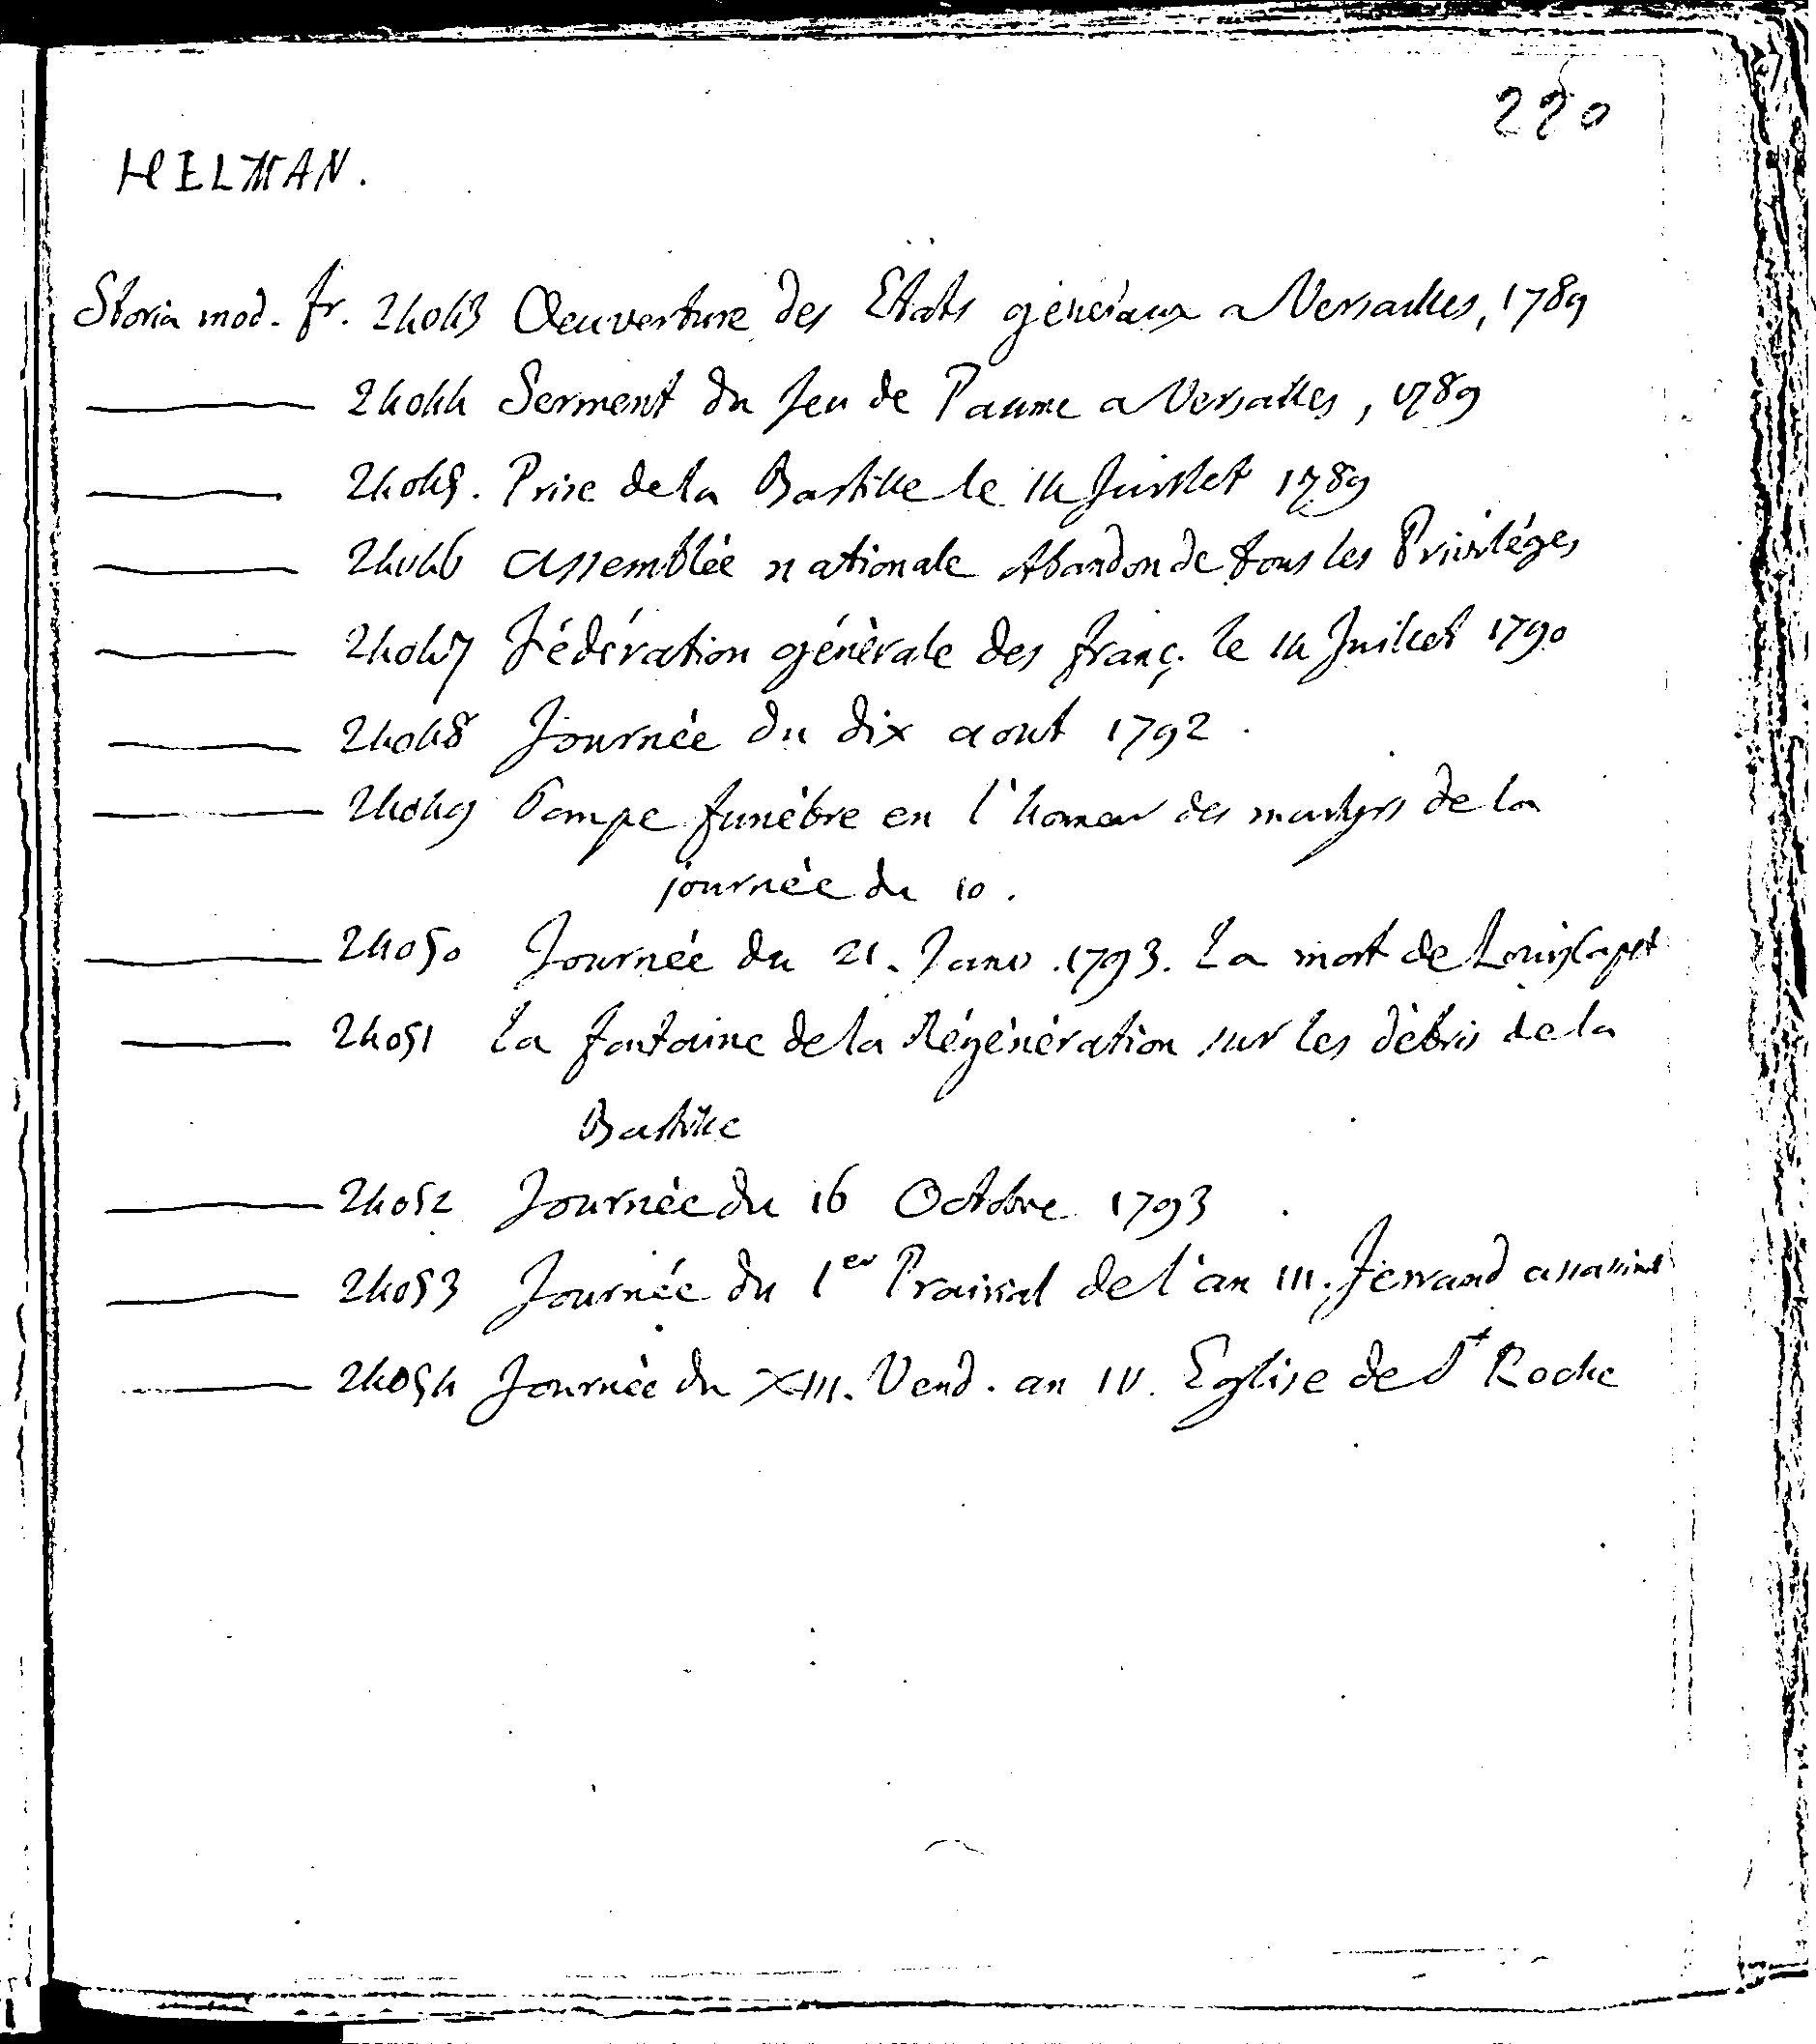 220
HELMAN.
Storia mod. fr. 24043 Oeuverture des Etats géneraux a Versailles, 1789
24044 Serment du Jeu de Paume a Versailles, 1789
24045. Prise de la Bastille le 14 Juillet 1789
24046 Assemblée nationale Abandon de tous les Privléges
24047 Fédération générale des franç. le 14 Juillet 1790
24048 Journée du dix aout 1792.
24049 Pompe funèbre en l'honeur des martyrs de la
journée du 10.
24050 Journée du 21. Janv. 1793. La mort de Louis Capet
24051 la fontaine de la Régénération sur les débris de la
Bastille
24052 Journée du 16 Octobre 1793
24053 Journée du 1er Prairial de l'an III. Ferrand assassiné
24054 Journée du XIII. Vend. an IV. Eglise de St Roche